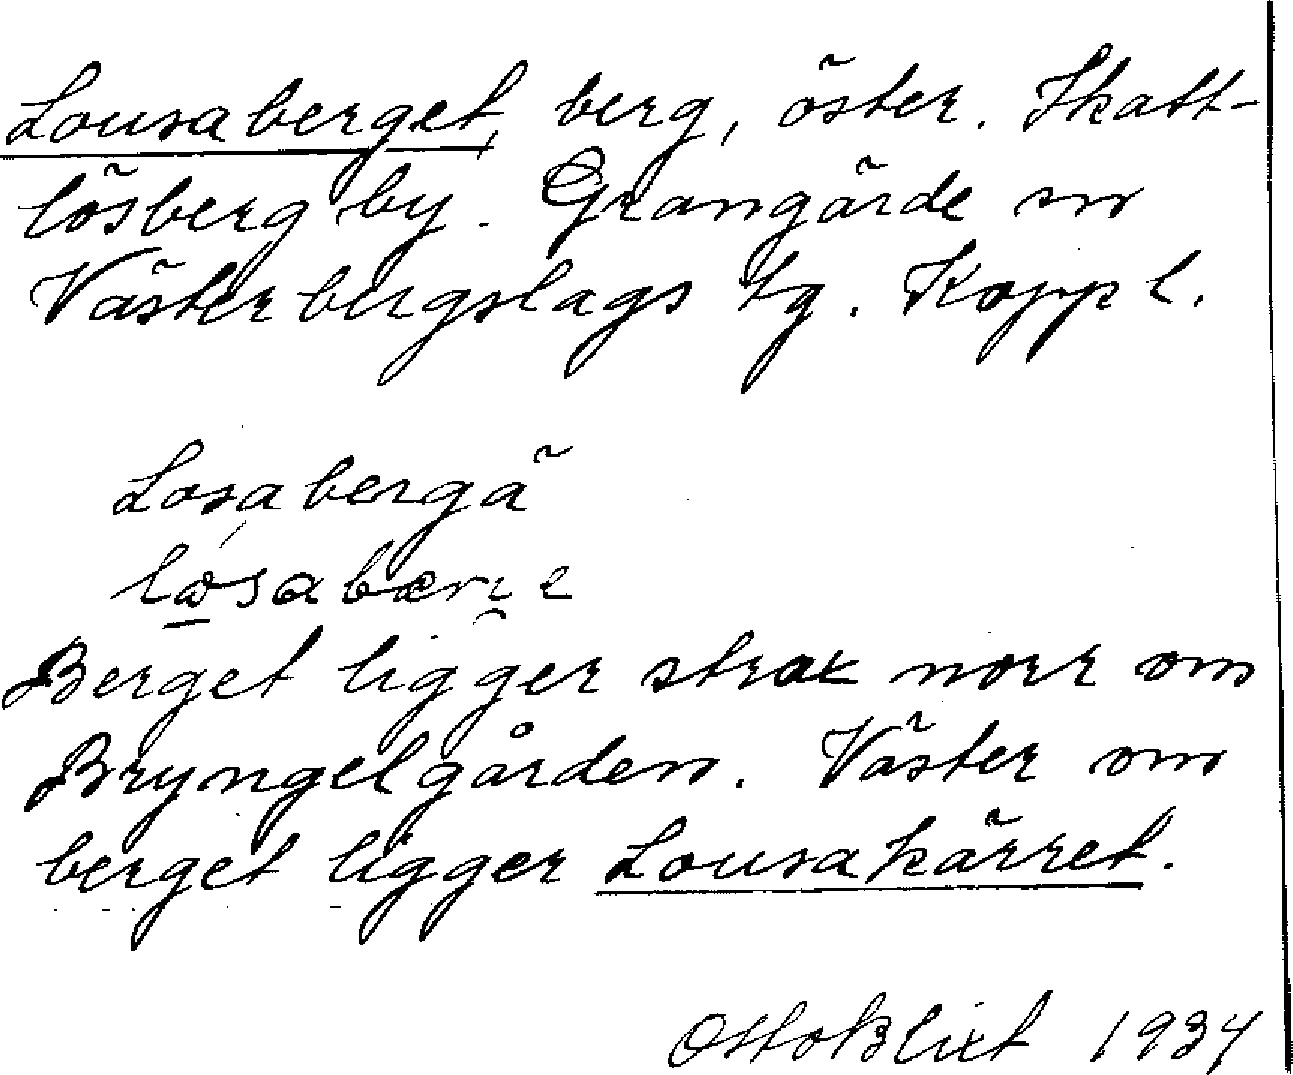 Lousaberget, berg, öster. Skatt-
lösberg by. Grangärde sn
Västerbergslags tg. Koppl.
Losabergä
Berget ligger strax norr om
Bryngelgården. Väster om
berget ligger Lousakärret.
Otto Blixt 1934